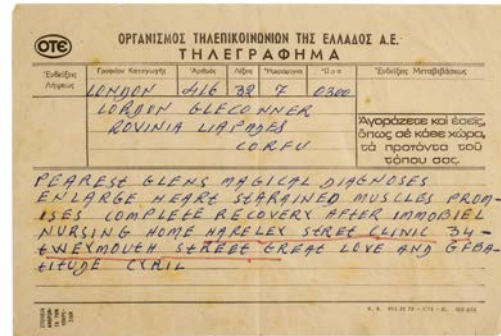 ΟΤΕ
ΟΡΓΑΝΙΣΜΟΣ ΤΗΛΕΠΙΚΟΙΝΩΝΙΩΝ ΤΗΣ ΕΛΛΑΔΟΣ Α.Ε.
ΤΗΛΕΓΡΑΦΗΜΑ
Ἐνδείξεις Λήψεως
Γραφεῖον Καταγωγῆς Ἀριθμὸς Λέξεις Ἡμερομηνία Ὥρα
Ἐνδείξεις Μεταβιβάσεως
LONDON 416 32 7 0300
LORDON GLECONNER
ROVINIA LIAPADES
CORFU
Ἀγοράζετε καί ἐσεῖς,
ὅπως σέ κάθε χώρα,
τά προϊόντα τοῦ
τόπου σας.
PEAREST GLENS MAGICAL DIAGNOSES
ENLARGE HEART STARAINED MUSCLES PROM-
ISES COMPLETE RECOVERY AFTER IMMOBIEL
NURSING HOME HARELEY STRET CLINIC 34-
TWEYMOUTH STREET GREAT LOVE AND GFBA-
TITUDE CYRIL